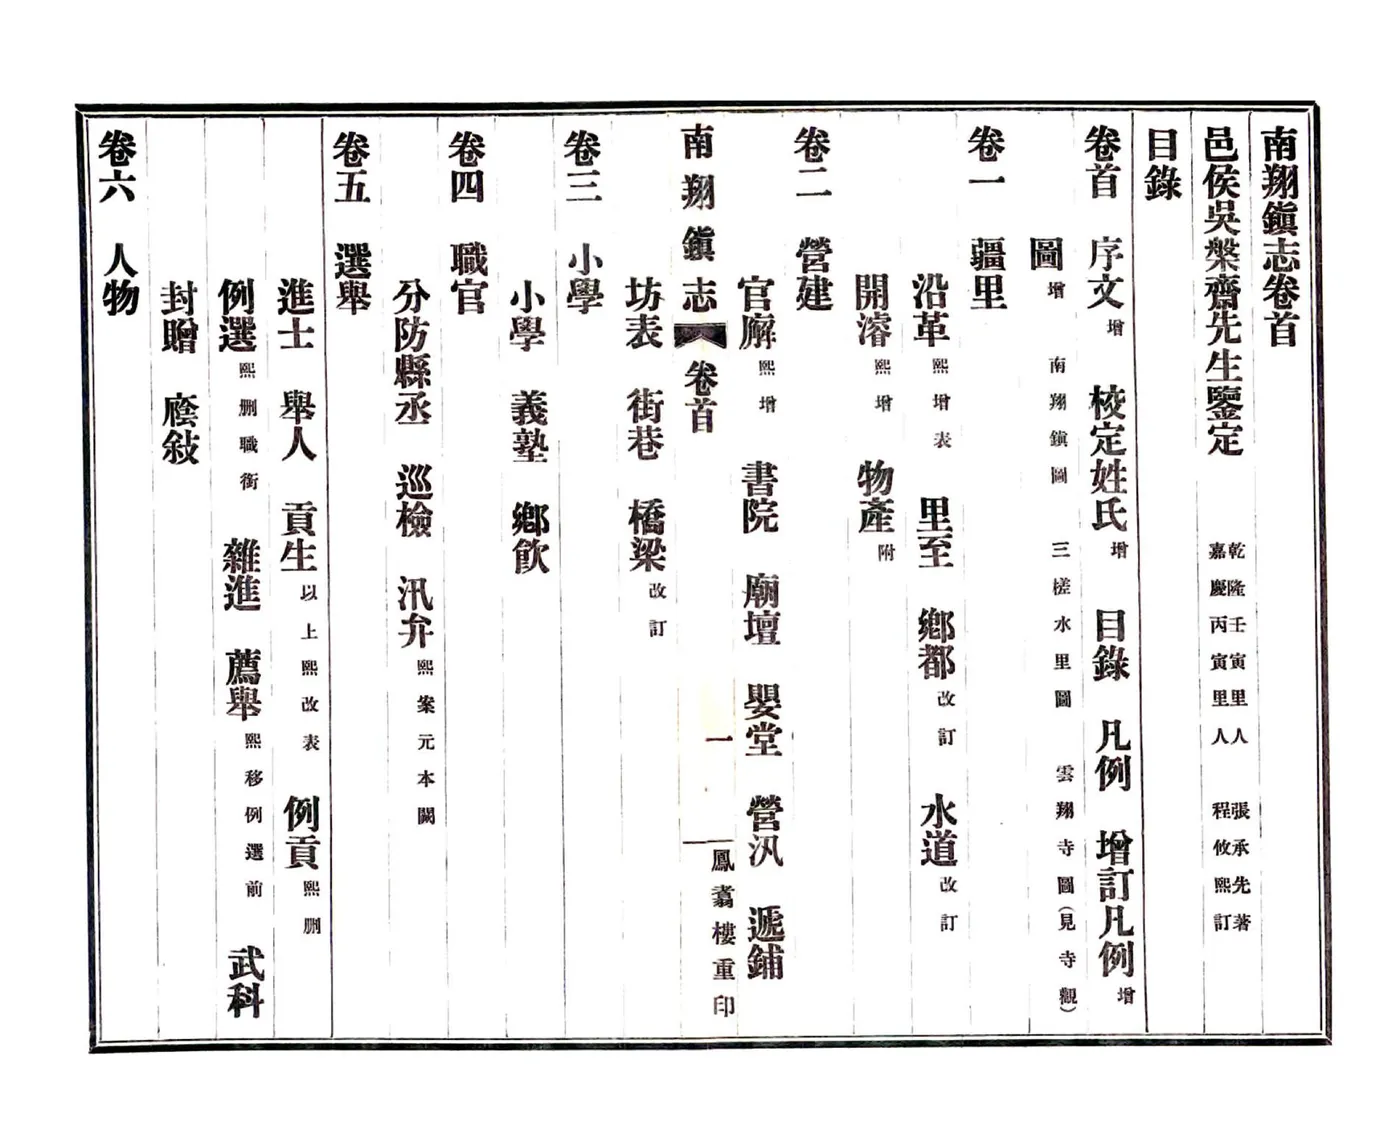 南翔鎭志卷首
邑侯吳槃齋先生鑒定
乾隆壬寅里人 張承先著
嘉慶丙寅里人 程攸熙訂
目錄
卷首 序文增 校定姓氏增 目錄 凡例 增訂凡例增
圖增 南翔鎭圖 三槎水里圖 雲翔寺圖(見寺觀)
卷一 疆里
沿革熙增表 里至 鄉都改訂 水道改訂
開濬熙增 物產附
卷二 營建
官廨熙增 書院 廟壇 嬰堂 營汛 遞鋪
南翔鎭志 卷首 一 鳳翥樓重印
坊表 街巷 橋梁改訂
卷三 小學
小學 義塾 鄉飮
卷四 職官
分防縣丞 巡檢 汛弁熙案元本闕
卷五 選舉
進士 舉人 貢生以上熙改表 例貢熙刪
例選熙刪職銜 雜進 薦舉熙移例選前 武科
封贈 廕敍
卷六 人物